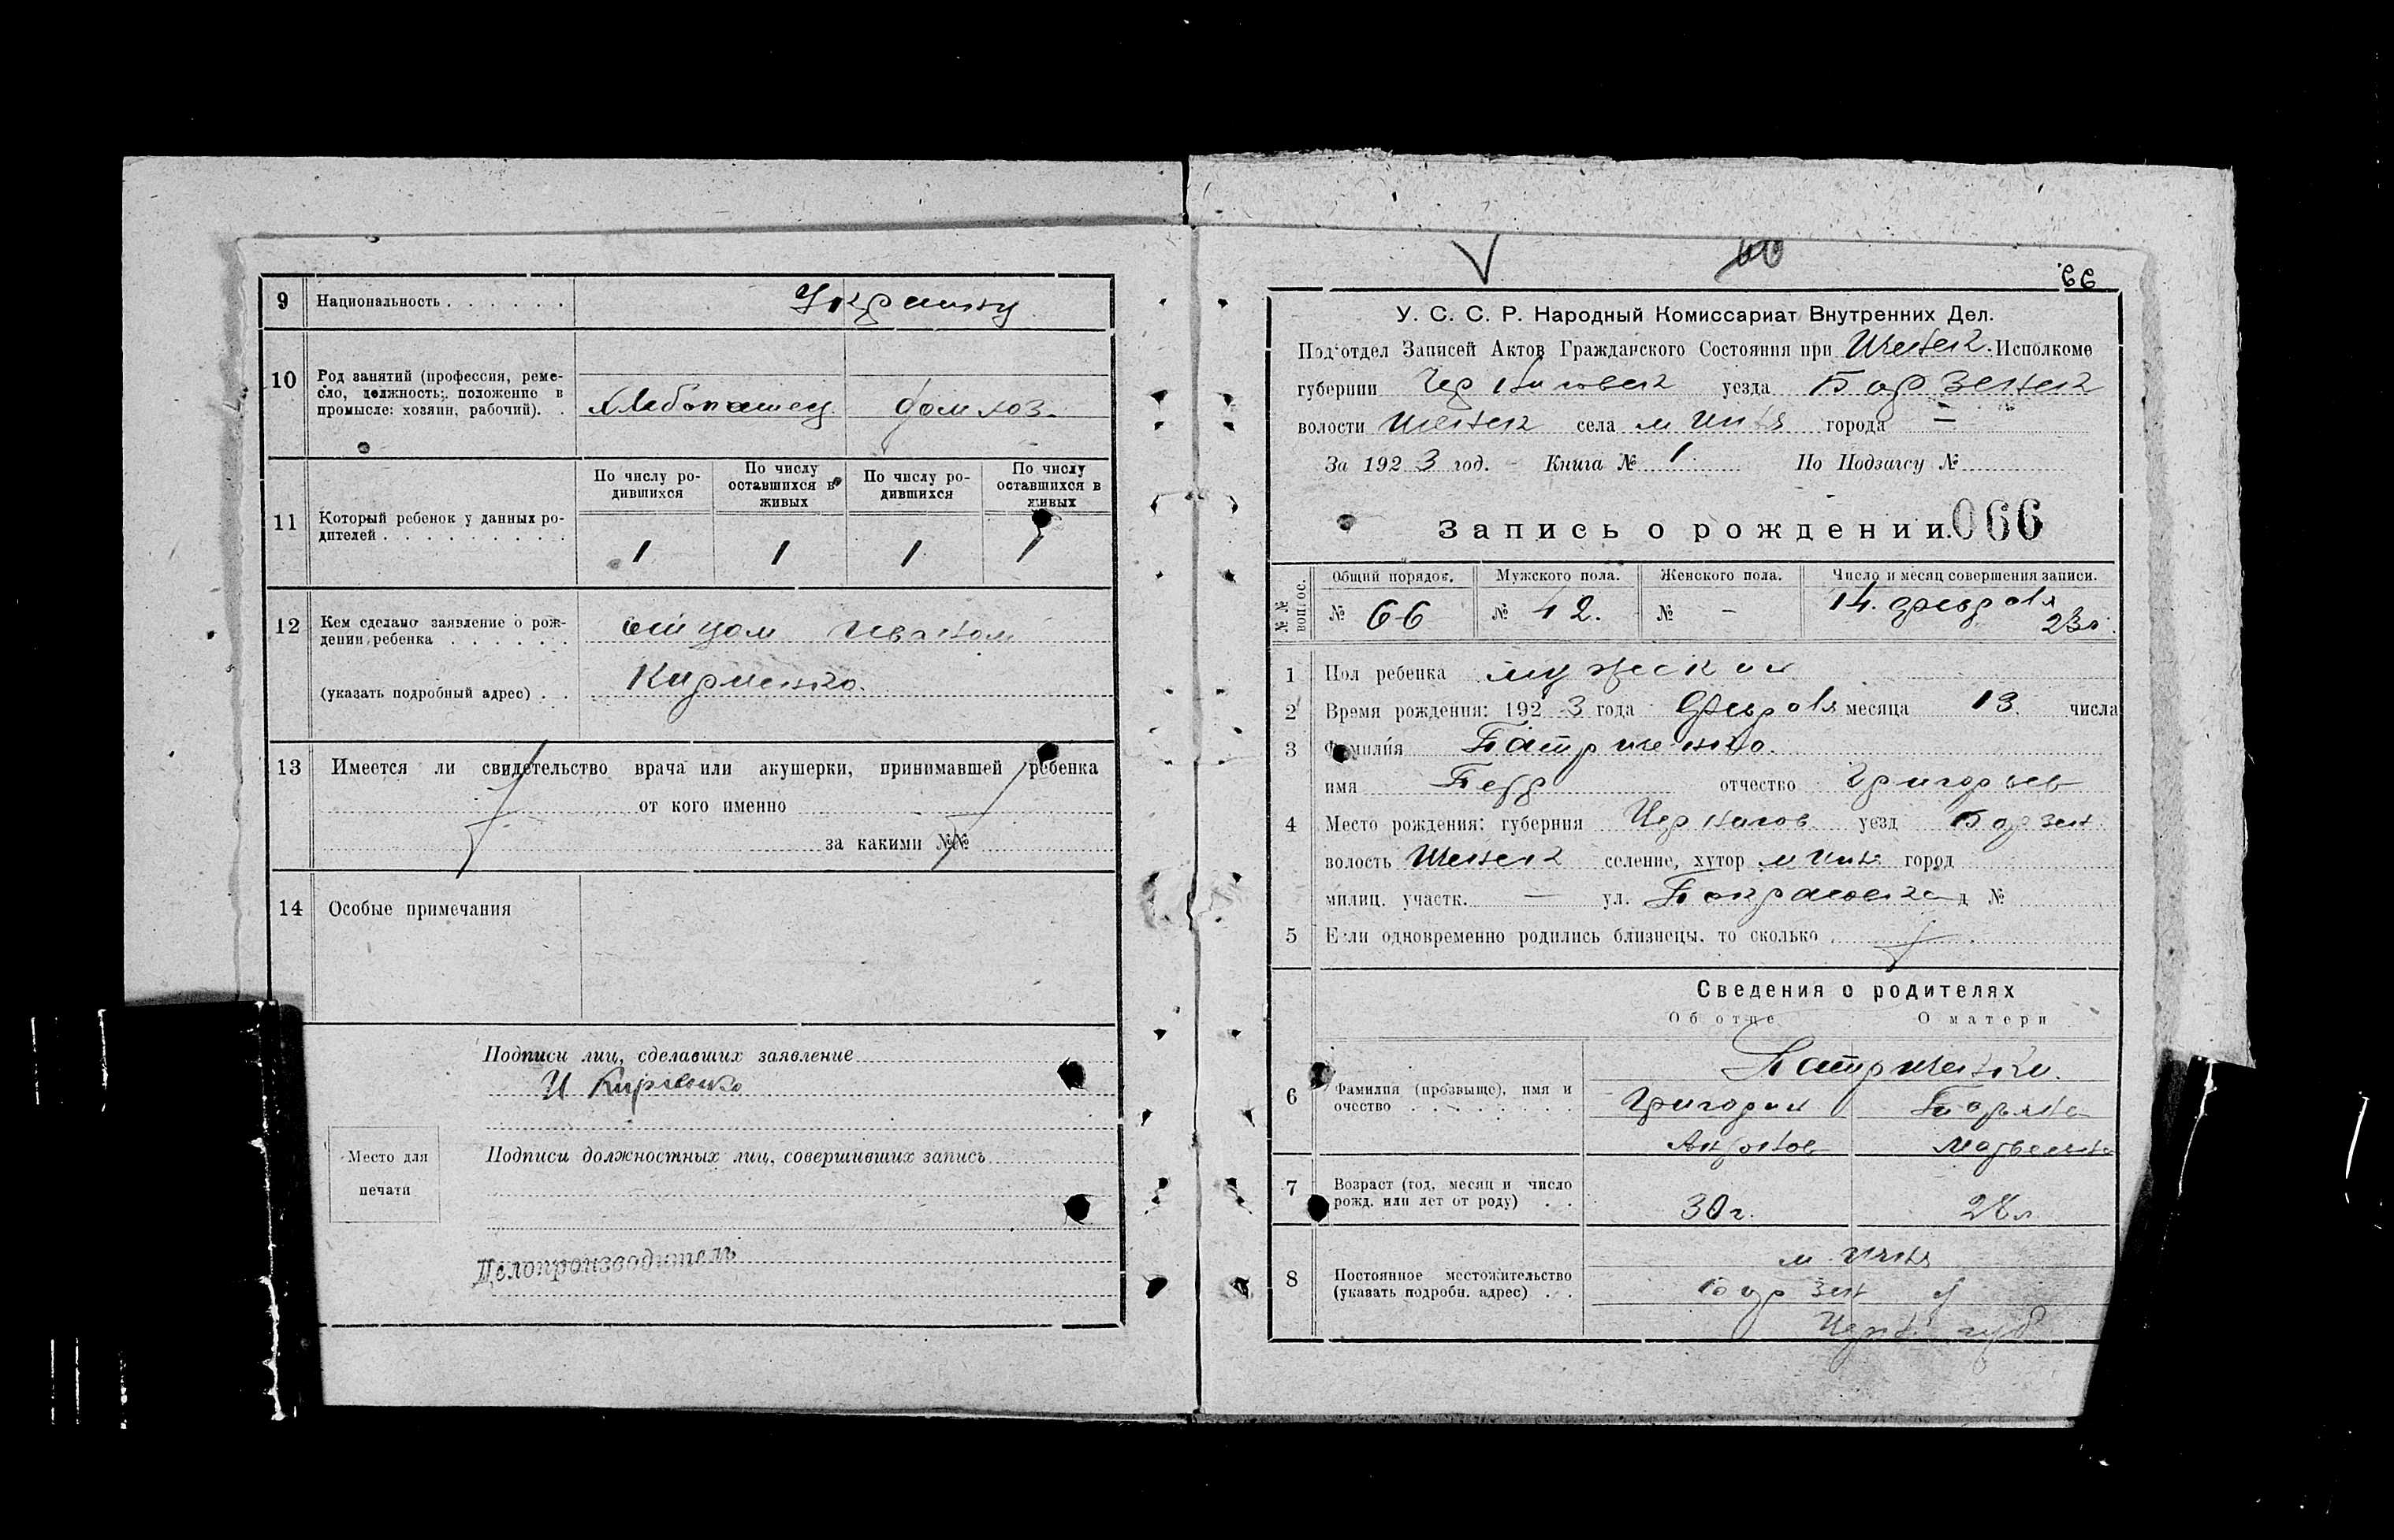 9 Национальность . . . . . .
10 Род занятий (профессия, реме-
сло, должность; положение в
промысле: хозяин, рабочий). .
Хлебопашец домхоз.
По числу ро-
дившихся
По числу
оставшихся в
живых
По числу ро-
дившихся
По числу
оставшихся в
живых
11 Который ребенок у данных ро-
дителей . . . . . . . . .
1 1 1 1
12 Кем сделано заявление о рож-
дении ребенка . . . . . .
отцом Иваном
(указать подробный адрес) . .
Кириенко.
13 Имеется ли свидетельство врача или акушерки, принимавшей ребенка
от кого именно
за какими №№
14 Особые примечания
Подписи лиц, сделавших заявление
И Кириенко
Подписи должностных лиц, совершивших запись
Место для
печати
Делопроизводитель
66
У. С. С. Р. Народный Комиссариат Внутренних Дел.
Под‘отдел Записей Актов Гражданского Состояния при Иченск. Исполкоме
губернии Черниговск уезда Борзенск
волости Иченск села м Ичня города —
За 192 3 год. Книга № 1 По Подзагсу №
Запись о рождении. 066
№№ воп. ос.
Общий порядов. Мужского пола. Женского пола. Число и месяц совершения записи.
№ 66 № 42. № — 14. февраля
23г.
1 Пол ребенка мужеский
2 Время рождения: 192 3 года Февраля месяца 13. числа
3 Фамилия Патриченко.
имя Петр отчество Григорьев
4 Место рождения: губерния Чернигов. уезд Борзен.
волость Иченск селение, хутор м Ичня город
милиц. участк. — ул. д №
5 Если одновременно родились близнецы, то сколько
Сведения о родителях
Об отце О матери
6 Фамилия (прозвыще), имя и
очество . . . . . . . .
Патриченки.
Григорий
Антонов Матвеевна
7 Возраст (год, месяц и число
рожд. или лет от роду) . .
30 г. 28 л
8 Постоянное местожительство
(указать подробн. адрес) . .
м. Ичня
Борзен у
Черн. губ